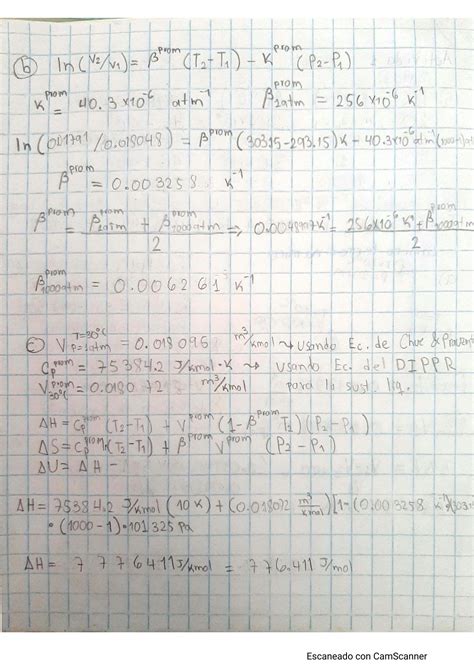 b) ln(V2/V1) = β^prom (T2-T1) - K^prom (P2-P1)
K^prom = 40.3x10^-6 atm^-1 β^prom_1atm = 256x10^-6 K^-1
ln(0.01791/0.018048) = β^prom (303.15-293.15)K - 40.3x10^-6 atm^-1 (1000-1)at
β^prom = 0.003258 K^-1
β^prom = β^prom_1atm + β^prom_1000atm / 2 ⇒ = 256x10^-6 K^-1 + β^prom_1000atm / 2
β^prom_1000atm = 0.006261 K^-1
c) V^T=30°C_P=1atm = 0.018095 m³/kmol → usando Ec. de Chue & Prausn
Cp^prom = 75384.2 J/kmol·K → usando Ec. del DIPPR
V^prom_30°C = 0.018072 m³/kmol para la sust. liq.
ΔH = Cp^prom (T2-T1) + V^prom (1-β^prom T2)(P2-P1)
ΔS = Cp^prom (T2-T1) + β^prom V^prom (P2-P1)
ΔU = ΔH -
ΔH = 75384.2 J/kmol (10 K) + (0.018072 m³/kmol)[1-(0.003258 K^-1)(303.15
• (1000-1)•101325 Pa
ΔH = 776411 J/kmol = 776.411 J/mol
Escaneado con CamScanner